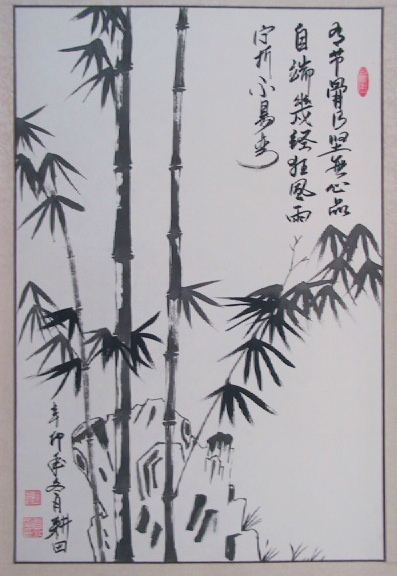 有节骨乃坚無心品
自端幾经狂風雨
宁折不易弯
辛卯年冬月耕田